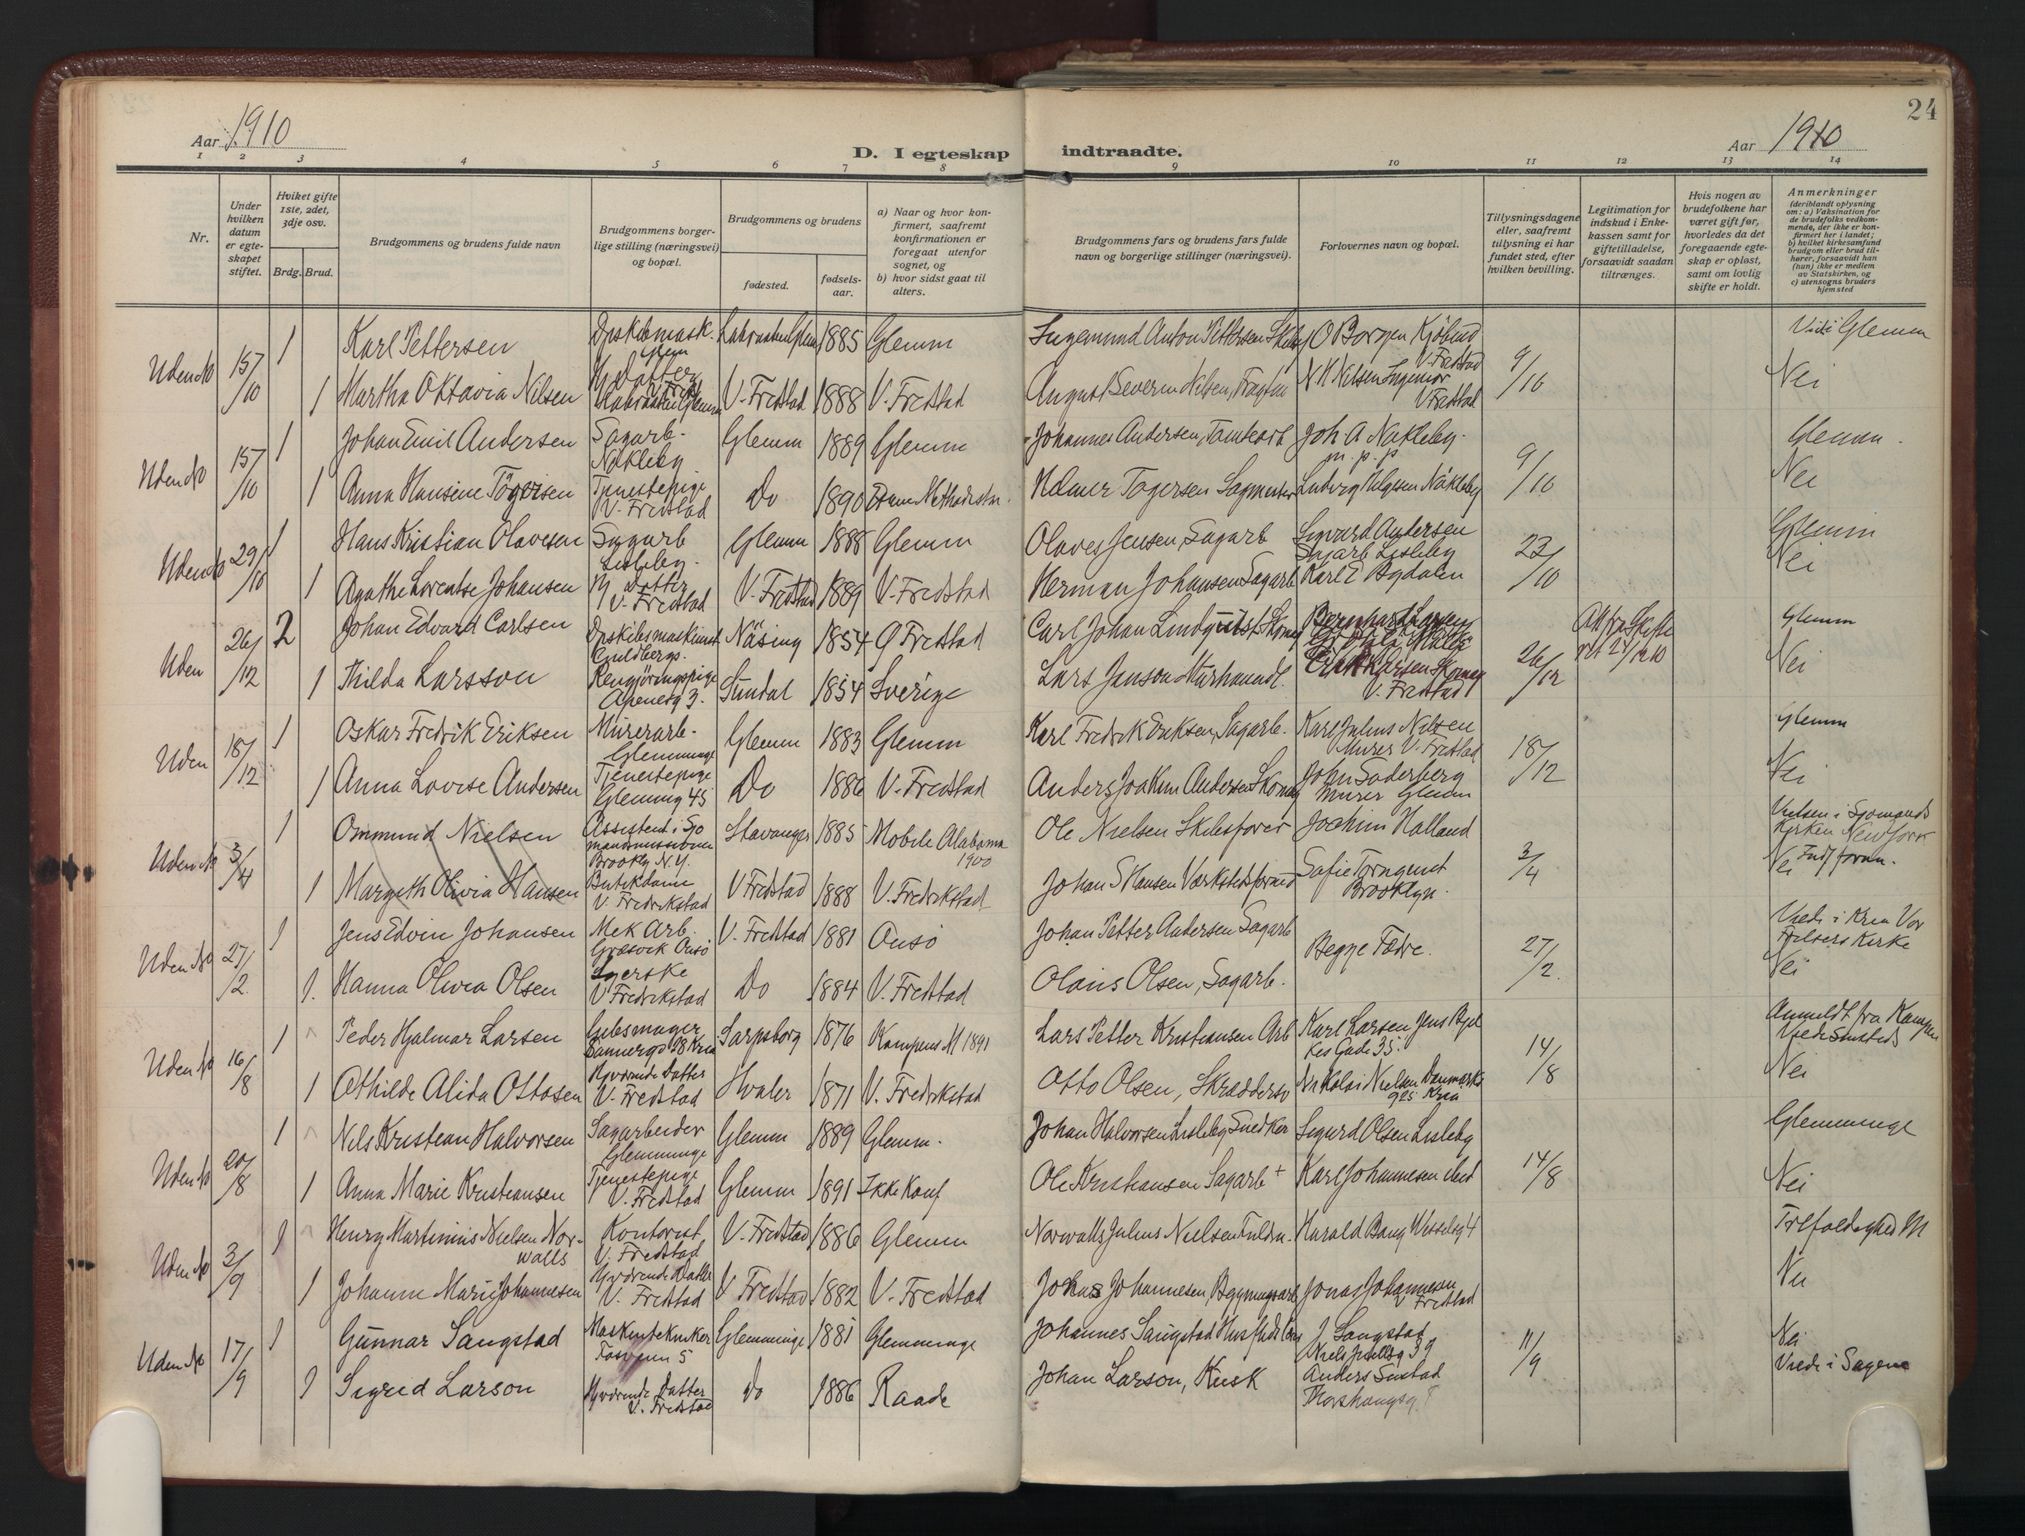 24
Aar 1910
D. I egteskap indtraadte.
Aar 1910
1 2 3 4 5 6 7 8 9 10 11 12 13 14
Nr.
Under hvilken datum er egteskapet stiftet.
Hviket gifte 1ste, 2det, 3dje osv.
Brdg. Brud.
Brudgommens og brudens fulde navn
Brudgommens borgerlige stilling (næringsvei) og bopæl.
Brudgommens og brudens
fødested.
fødselsaar.
a) Naar og hvor konfirmert, saafremt konfirmationen er foregaat utenfor sognet, og
b) hvor sidst gaat til alters.
Brudgommens fars og brudens fars fulde navn og borgerlige stillinger (næringsvei).
Forlovernes navn og bopæl.
Tillysningsdagene eller, saafremt tillysning ei har fundet sted, efter hvilken bevilling.
Legitimation for indskud i Enkekassen samt for giftetilladelse, forsaavidt saadan tiltrænges.
Hvis nogen av brudefolkene har været gift før, hvorledes da det foregaaende egteskap er opløst, samt om lovlig skifte er holdt.
Anmerkninger (deriblandt oplysning om: a) Vaksination for de brudefolks vedkommende, der ikke er konfirmert her i landet; b) hvilket kirkesamfund brudgom eller brud tilhører, forsaavidt han (hun) ikke er medlem av Statskirken, og c) utensogns bruders hjemsted
Uden No 15/10 1 Karl Pettersen 1885 Glemm Ingemund Anton Pettersen O Borgen V. Fredstad 9/10 Glemm
1 Martha Oktavia Nilsen Hj Datter V. Fredstad 1888 V. Fredstad August Severin Nilsen, N N Nilsen Ingeniør V Fredstad Nei
Uden No 15/10 1 Johan Emil Andersen Sagarb. Nøkleby Glemm 1889 Glemm Johannes Andersen, Tomtearb Joh A Nøkleby. m. p. p 9/10 Glemm.
1 Anna Hansine Tøgersen Tjenestepige V. Fredstad Do 1890 Hilmer Tøgersen Sagmester Ludvig Helgesen Nøkleby Nei
Uden No 29/10 1 Hans Kristian Olavesen Sagarb Lisleby. Glemm 1888 Glemm Olaves Jensen, Sagarb Sigvard Andersen Sagarb Lisleby 23/10 Glemm
1 Agathe Lorentse Johansen Hj Datter V. Fredstad V. Fredstad 1889 V. Fredstad Herman Johansen Sagarb Karl E Bydalen Nei
Uden 26/12 2 Johan Edvard Carlsen Näsing 1854 Ø Fredstad Carl Johan Lindqvist Bernhard Larsen 26/12 Glemm
1 Thilda Larsson Rengjøringspige Sundal 1854 Sverige Lars Janson V. Fredstad Nei
Uden 18/12 1 Oskar Fredrik Eriksen Murerarb. Glemminge Glemm 1883 Glemm Karl Fredrik Eriksen, Sagarb. Karl Julius Nilsen Murer V. Fredstad 18/12 Glemm
1 Anna Lovise Andersen Tjenestepige Glemmg 45 Do 1886 V. Fredstad Anders Joakim Andersen Skomag John Søderberg Murer Glemm Nei
Uden No 3/4 1 Ommund Nielsen Assistent i Sjømandsmissionen Brookly N.Y. Stavanger 1885 Mobile Alabama 1900 Ole Nielsen Skibsfører Jochim Halland 3/4 Vielsen i Sjømands Kirken
1 Margith Olivia Hansen Butikdame V. Fredrikstad V Fredstad 1888 V. Fredrikstad Johan S Hansen Værkstedsformd Sofie Brooklyn. Nei
Uden No 27/2 1 Jens Edvin Johansen Mek Arb. Græsvik Onsø V. Fredstad 1881 Onsø Johan Petter Andersen Sagarb Begge Fædre. 27/2. Viede i Kria Vor Frelsers Kirke
1. Hanna Olivia Olsen Syerske V Fredrikstad Do 1884 V. Fredstad Olaus Olsen, Sagarb. Nei
Uden No 16/8 1 Peder Hjalmar Larsen Gibsmager Sarpsborg 1876 Kampens M 1891 Lars Petter Kristiansen Arb Karl Larsen Jens Bjelkes Gade 35. 14/8 Anmeldt fra Kampen
1 Othilde Alida Ottosen Hjværende Datter V. Fredstad Hvaler 1871 V. Fredrikstad Otto Olsen, Nikolai Nielsen Danmarks g 25 Kria Nei
Uden No 20/8 1 Nils Kristian Halvorsen Sagarbeider Glemminge Glemm 1889 Glemm. Johan Halvorsen Lisleby Snedker Sigurd Olsen Lisleby 14/8 Glemminge
1 Anna Marie Kristiansen Tjenestepige V. Fredstad Glemm 1891 Ikke Konf Ole Kristiansen Sagarb + Karl Johannesen ibid Nei
Uden No 3/9 1 Henry Martinius Nielsen Norwalls Kontorist V. Fredstad V. Fredstad 1886 Glemm Norwalls Julius Nielsen Harald Bang Wesselsg 4 Trefoldighed M
1 Johanne Marie Johannesen Hjværende Datter V. Fredstad V Fredstad 1882 V. Fredstad Johas Johannesen, Jonas Johannesen V Fredstad Nei
Uden No 17/9 1 Gunnar Sangstad Maskintekniker Fosveien 5 Glemminge 1881 Glemminge Johannes Sangstad J Sangstad Niels Juelsg 39 11/9 Nei
1 Sigrid Larson Hjværende Datter V. Fredstad Do 1886 Raade Johan Larson, Kusk Anders Viede i Sagene